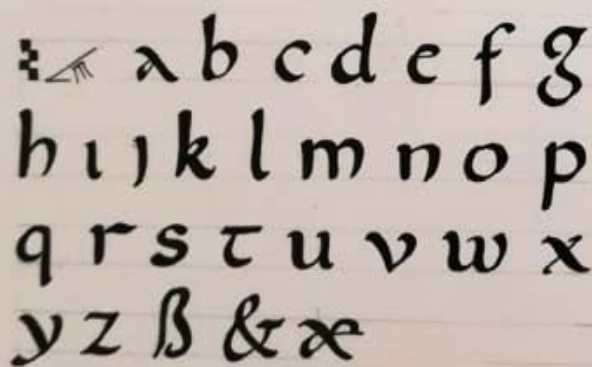 a b c d e f g
h ı ȷ k l m n o p
q r s t u v w x
y z ß & æ